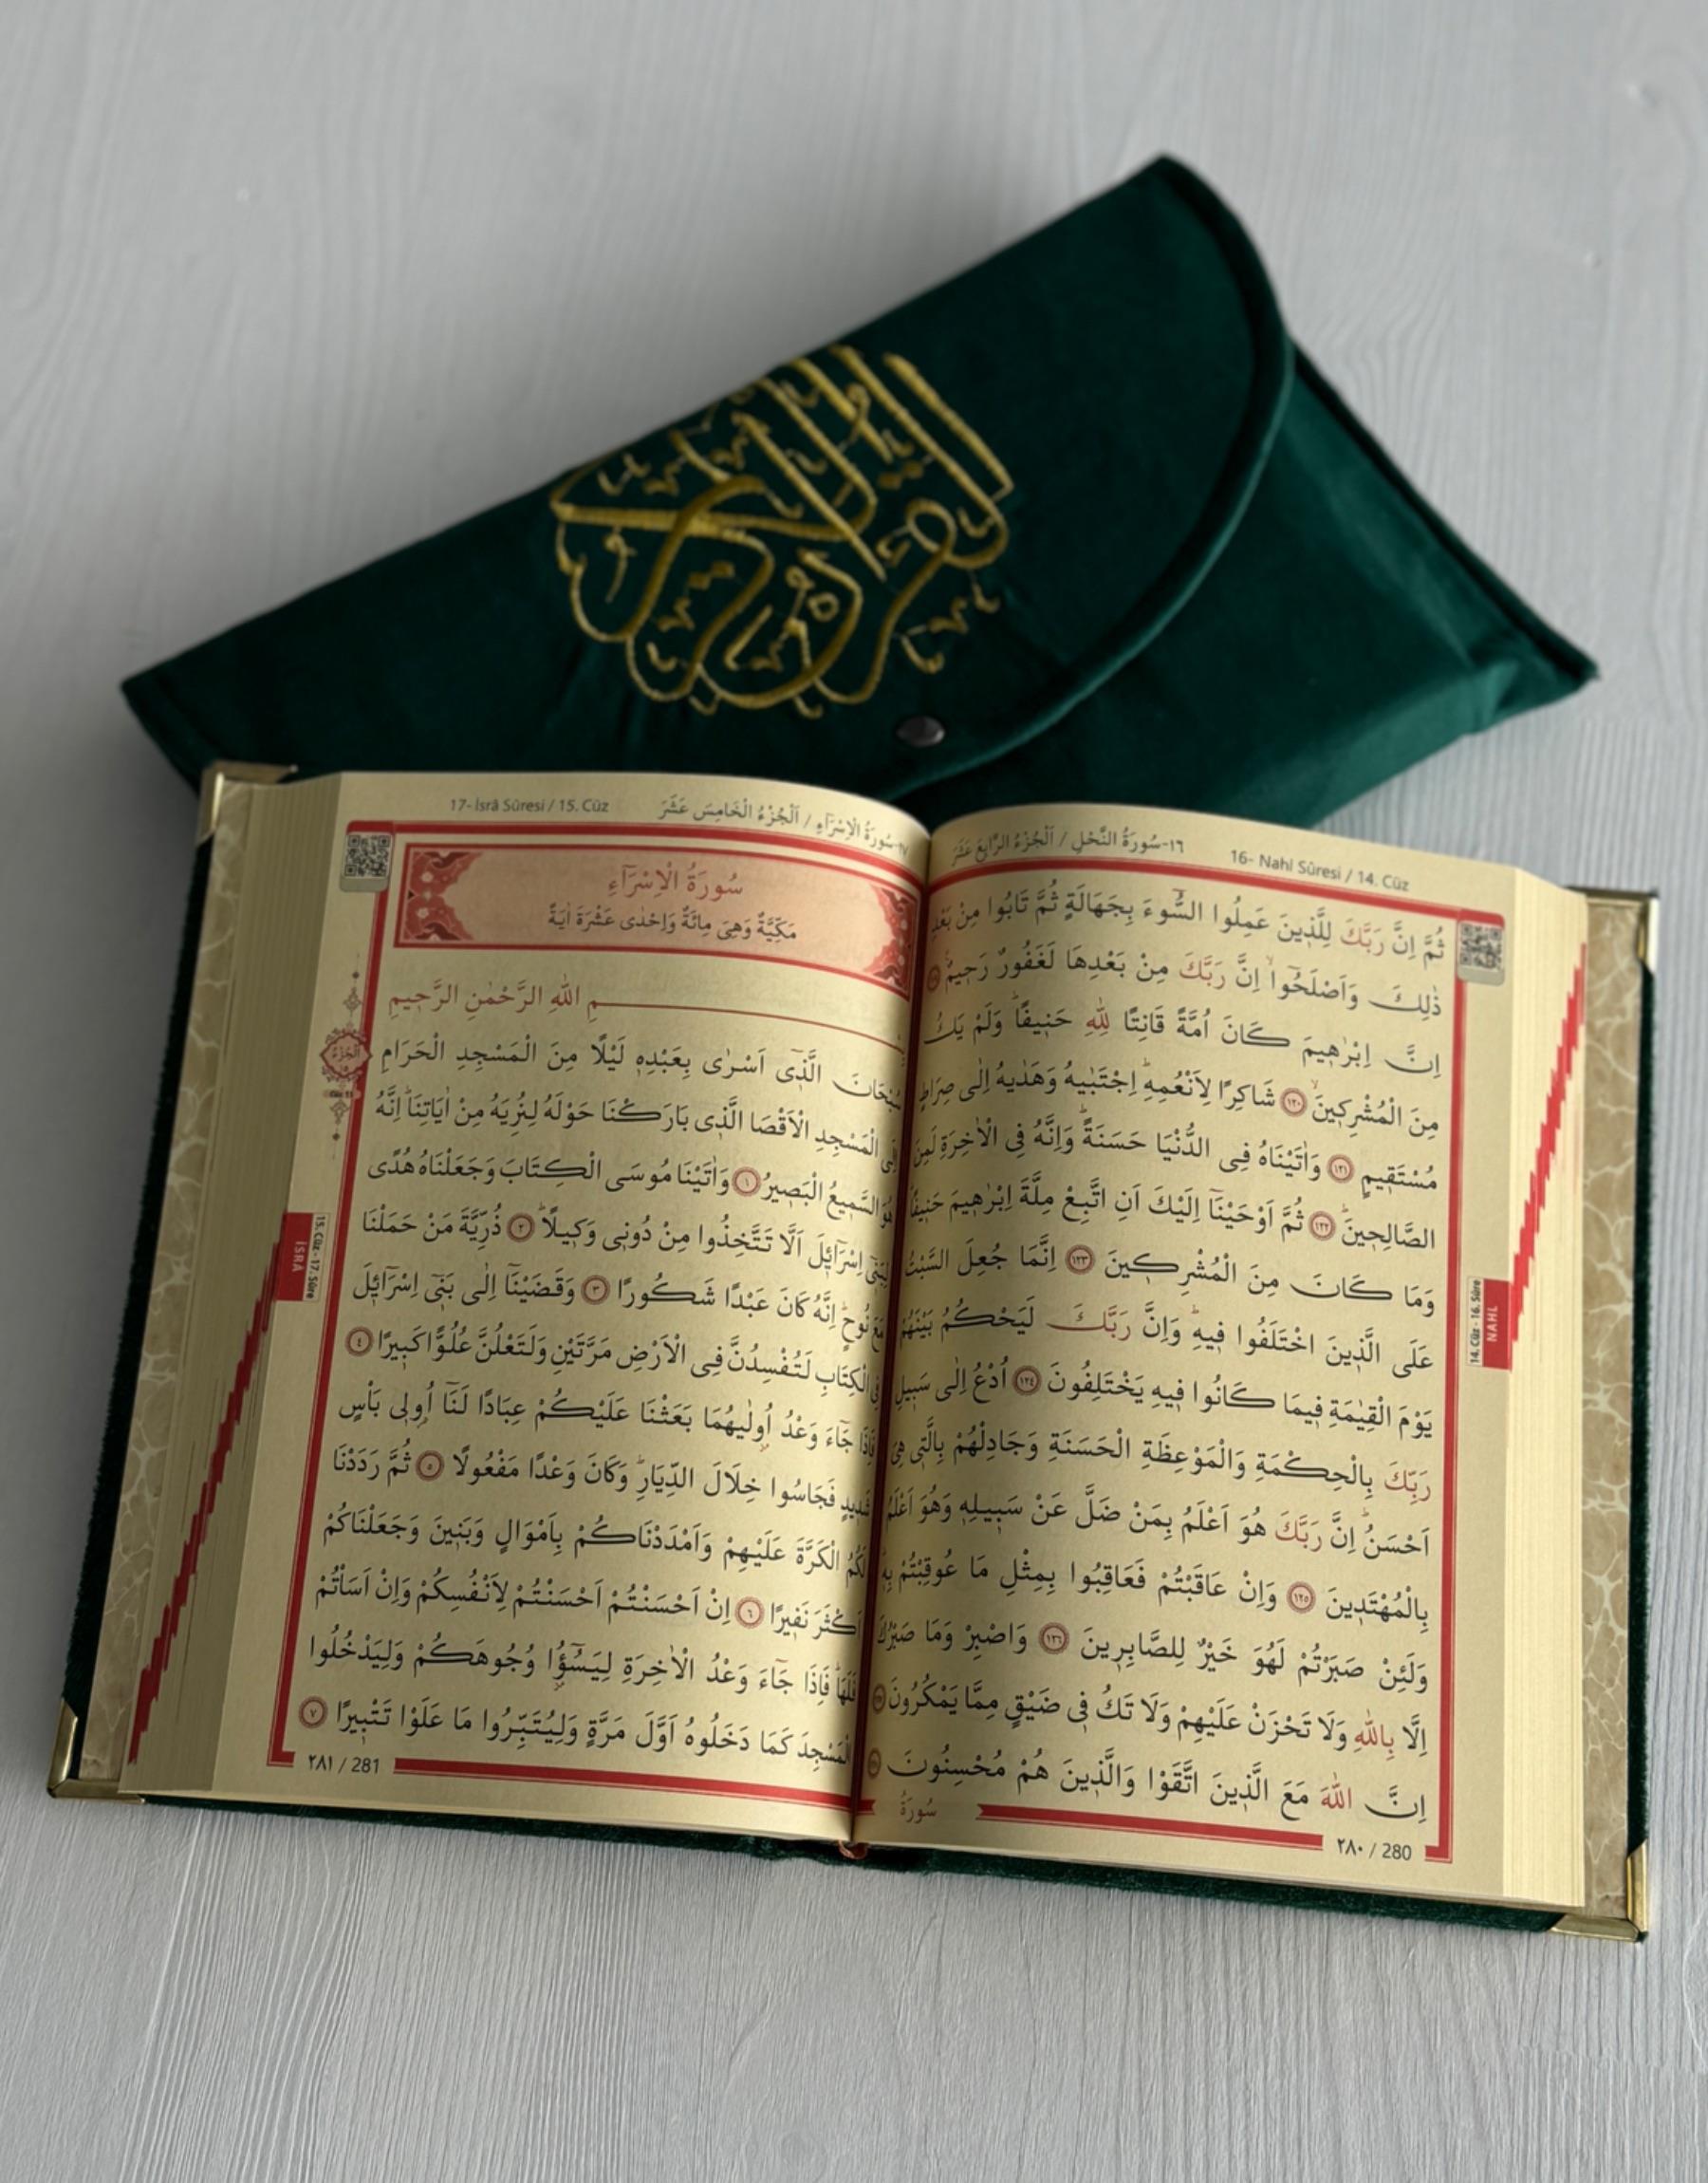 ١٦-سُورَةُ النَّحْلِ / اَلْجُزْءُ الرَّابِعَ عَشَرَ
16- Nahl Sûresi / 14. Cüz
ثُمَّ اِنَّ رَبَّكَ لِلَّذ۪ينَ عَمِلُوا السُّٓوءَ بِجَهَالَةٍ ثُمَّ تَابُوا مِنْ بَعْدِ
ذٰلِكَ وَاَصْلَحُٓوا اِنَّ رَبَّكَ مِنْ بَعْدِهَا لَغَفُورٌ رَح۪يمٌ۟
اِنَّ اِبْرٰه۪يمَ كَانَ اُمَّةً قَانِتًا لِلّٰهِ حَن۪يفًاۜ وَلَمْ يَكُ
مِنَ الْمُشْرِك۪ينَۙ ١٢٠ شَاكِرًا لِاَنْعُمِهِۜ اِجْتَبٰيهُ وَهَدٰيهُ اِلٰى صِرَاطٍ
مُسْتَق۪يمٍ ١٢١ وَاٰتَيْنَاهُ فِى الدُّنْيَا حَسَنَةًۜ وَاِنَّهُ فِى الْاٰخِرَةِ لَمِنَ
الصَّالِح۪ينَۜ ١٢٢ ثُمَّ اَوْحَيْنَٓا اِلَيْكَ اَنِ اتَّبِعْ مِلَّةَ اِبْرٰه۪يمَ حَن۪يفًاۜ
وَمَا كَانَ مِنَ الْمُشْرِك۪ينَ ١٢٣ اِنَّمَا جُعِلَ السَّبْتُ
عَلَى الَّذ۪ينَ اخْتَلَفُوا ف۪يهِۜ وَاِنَّ رَبَّكَ لَيَحْكُمُ بَيْنَهُمْ
يَوْمَ الْقِيٰمَةِ ف۪يمَا كَانُوا ف۪يهِ يَخْتَلِفُونَ ١٢٤ اُدْعُ اِلٰى سَب۪يلِ
رَبِّكَ بِالْحِكْمَةِ وَالْمَوْعِظَةِ الْحَسَنَةِ وَجَادِلْهُمْ بِالَّت۪ى هِىَ
اَحْسَنُۜ اِنَّ رَبَّكَ هُوَ اَعْلَمُ بِمَنْ ضَلَّ عَنْ سَب۪يلِه۪ وَهُوَ اَعْلَمُ
بِالْمُهْتَد۪ينَ ١٢٥ وَاِنْ عَاقَبْتُمْ فَعَاقِبُوا بِمِثْلِ مَا عُوقِبْتُمْ بِه۪ۜ
وَلَئِنْ صَبَرْتُمْ لَهُوَ خَيْرٌ لِلصَّابِر۪ينَ ١٢٦ وَاصْبِرْ وَمَا صَبْرُكَ
اِلَّا بِاللّٰهِ وَلَا تَحْزَنْ عَلَيْهِمْ وَلَا تَكُ ف۪ى ضَيْقٍ مِمَّا يَمْكُرُونَ
اِنَّ اللّٰهَ مَعَ الَّذ۪ينَ اتَّقَوْا وَالَّذ۪ينَ هُمْ مُحْسِنُونَ
سُورَةُ
٢٨٠ / 280
14. Cüz - 16. Sûre
NAHL
١٧-سُورَةُ الْاِسْرَٓاءِ / اَلْجُزْءُ الْخَامِسَ عَشَرَ
17- İsrâ Sûresi / 15. Cüz
سُورَةُ الْاِسْرَٓاءِ
مَكِّيَّةٌ وَهِىَ مِائَةٌ وَاِحْدٰى عَشْرَةَ اٰيَةً
بِسْمِ اللّٰهِ الرَّحْمٰنِ الرَّح۪يمِ
سُبْحَانَ الَّذ۪ٓى اَسْرٰى بِعَبْدِه۪ لَيْلًا مِنَ الْمَسْجِدِ الْحَرَامِ
اِلَى الْمَسْجِدِ الْاَقْصَا الَّذ۪ى بَارَكْنَا حَوْلَهُ لِنُرِيَهُ مِنْ اٰيَاتِنَاۜ اِنَّهُ
هُوَ السَّم۪يعُ الْبَص۪يرُ ١ وَاٰتَيْنَا مُوسَى الْكِتَابَ وَجَعَلْنَاهُ هُدًى
لِبَن۪ٓى اِسْرَٓائ۪لَ اَلَّا تَتَّخِذُوا مِنْ دُون۪ى وَك۪يلًاۜ ٢ ذُرِّيَّةَ مَنْ حَمَلْنَا
مَعَ نُوحٍۜ اِنَّهُ كَانَ عَبْدًا شَكُورًا ٣ وَقَضَيْنَٓا اِلٰى بَن۪ٓى اِسْرَٓائ۪لَ
فِى الْكِتَابِ لَتُفْسِدُنَّ فِى الْاَرْضِ مَرَّتَيْنِ وَلَتَعْلُنَّ عُلُوًّا كَب۪يرًا ٤
فَاِذَا جَٓاءَ وَعْدُ اُو۫لٰيهُمَا بَعَثْنَا عَلَيْكُمْ عِبَادًا لَنَٓا اُو۬ل۪ى بَأْسٍ
شَد۪يدٍ فَجَاسُوا خِلَالَ الدِّيَارِۜ وَكَانَ وَعْدًا مَفْعُولًا ٥ ثُمَّ رَدَدْنَا
لَكُمُ الْكَرَّةَ عَلَيْهِمْ وَاَمْدَدْنَاكُمْ بِاَمْوَالٍ وَبَن۪ينَ وَجَعَلْنَاكُمْ
اَكْثَرَ نَف۪يرًا ٦ اِنْ اَحْسَنْتُمْ اَحْسَنْتُمْ لِاَنْفُسِكُمْ وَاِنْ اَسَأْتُمْ
فَلَهَاۜ فَاِذَا جَٓاءَ وَعْدُ الْاٰخِرَةِ لِيَسُٓؤُ۫ا وُجُوهَكُمْ وَلِيَدْخُلُوا
الْمَسْجِدَ كَمَا دَخَلُوهُ اَوَّلَ مَرَّةٍ وَلِيُتَبِّرُوا مَا عَلَوْا تَتْب۪يرًا ٧
٢٨١ / 281
اَلْجُزْءُ
15. Cüz - 17. Sûre
İSRÂ